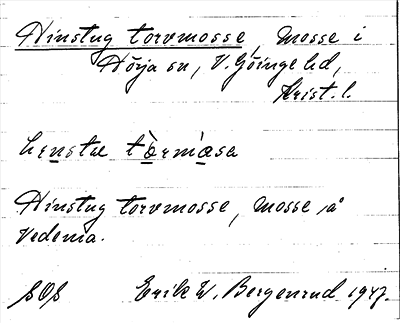 Hinstug torvmosse, Mosse i
Hörja sn, V. Göinge hd,
Krist. l.
hɛnstæ tòrmåsa
Hinstug torvmosse, mosse på
Vedema.
SOS Erik W. Bergenrud 1947.